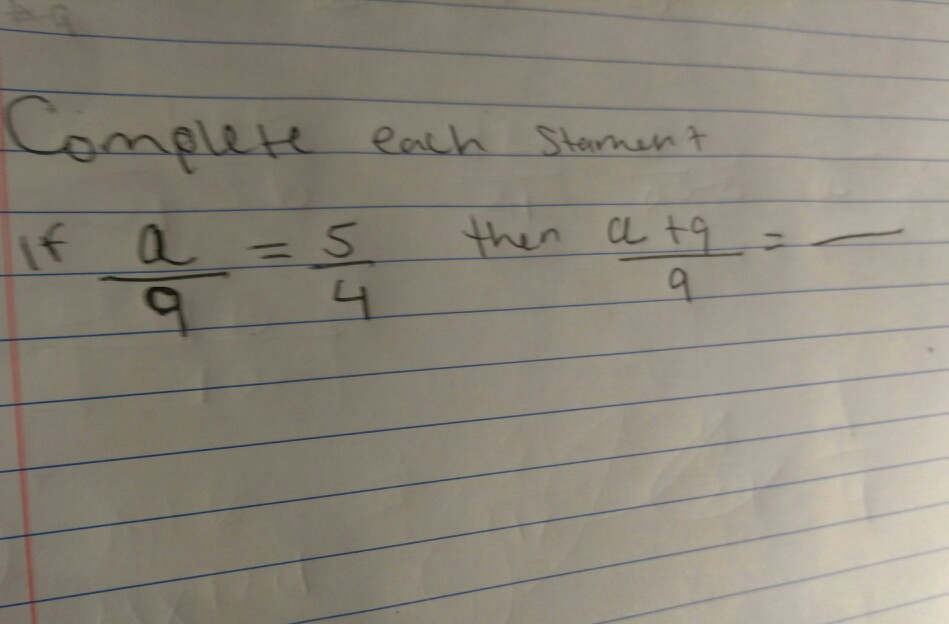 Complete each Stament
If a/9 = 5/4 then a+9/9 = —